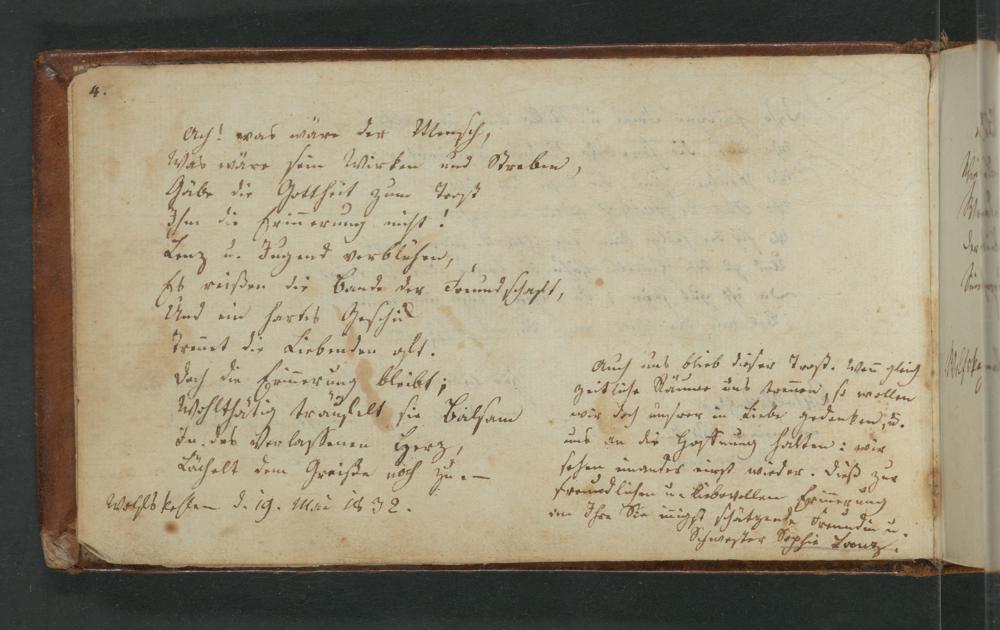 4.
Ach! was wäre der Mensch,
Was wäre sein Wirken und Streben,
Gäbe die Gottheit zum Trost
Ihm die Erinnerung nicht!
Lenz u. Jugend verblühen,
Es reißen die Bande der Freundschaft,
Und ein hartes Geschick
Trennet die Liebenden oft.
Doch die Erinnerung bleibt;
Wohlthätig träufelt sie Balsam
In des Verlassenen Herz,
Lächelt dem Greiße noch zu. —
d. 19. Mai 1832.
Auch uns blieb dieser Trost. Wenn gleich
zeitliche Räume uns trennen, so wollen
wir doch unsrer in Liebe gedenken, u.
uns an die Hoffnung halten: wir
sehen einander einst wieder. Dieß zur
freundlichen u. liebevollen Erinnerung
an Ihre Sie innigst schätzende Freundin u.
Schwester Sophie